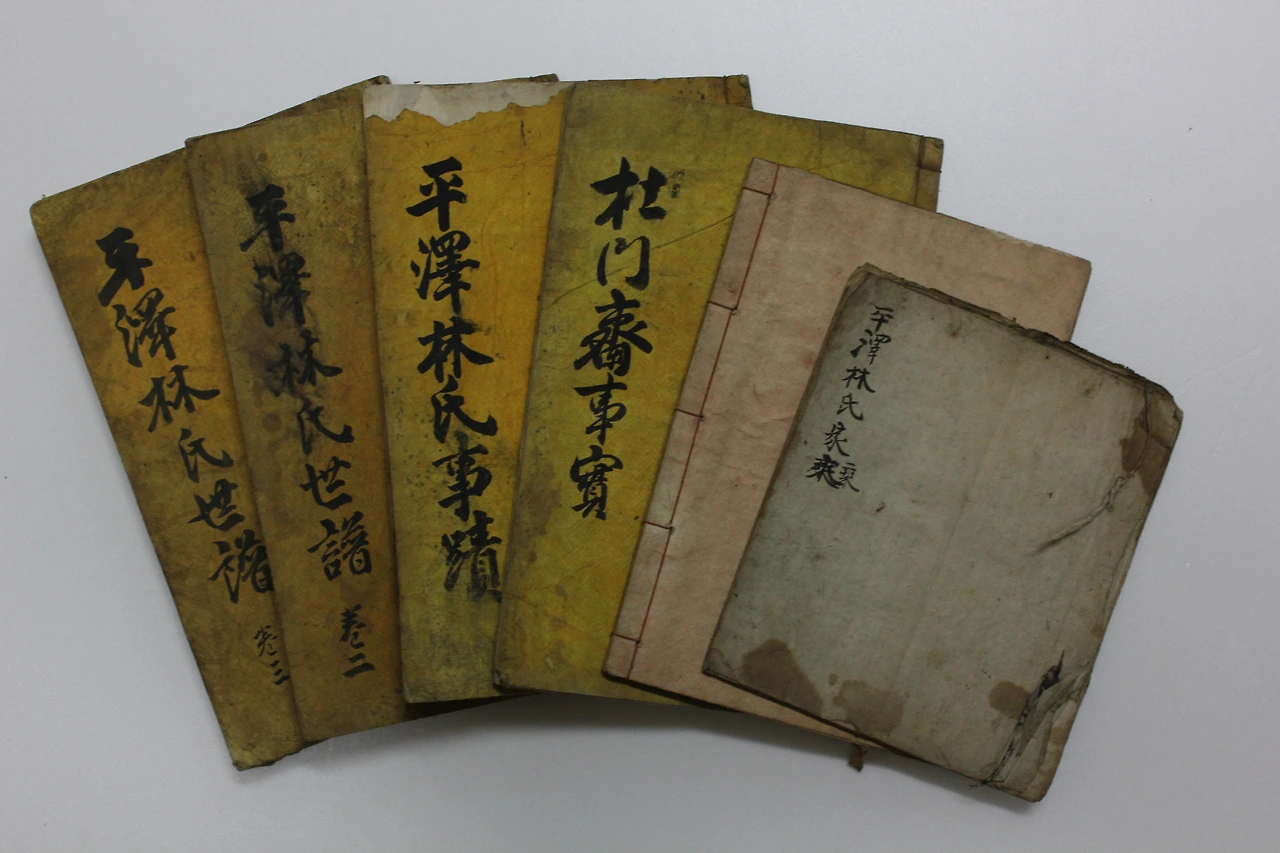 平澤林氏世譜 卷三
平澤林氏世譜 卷二
平澤林氏事蹟
杜門齋事實
平澤林氏家乘